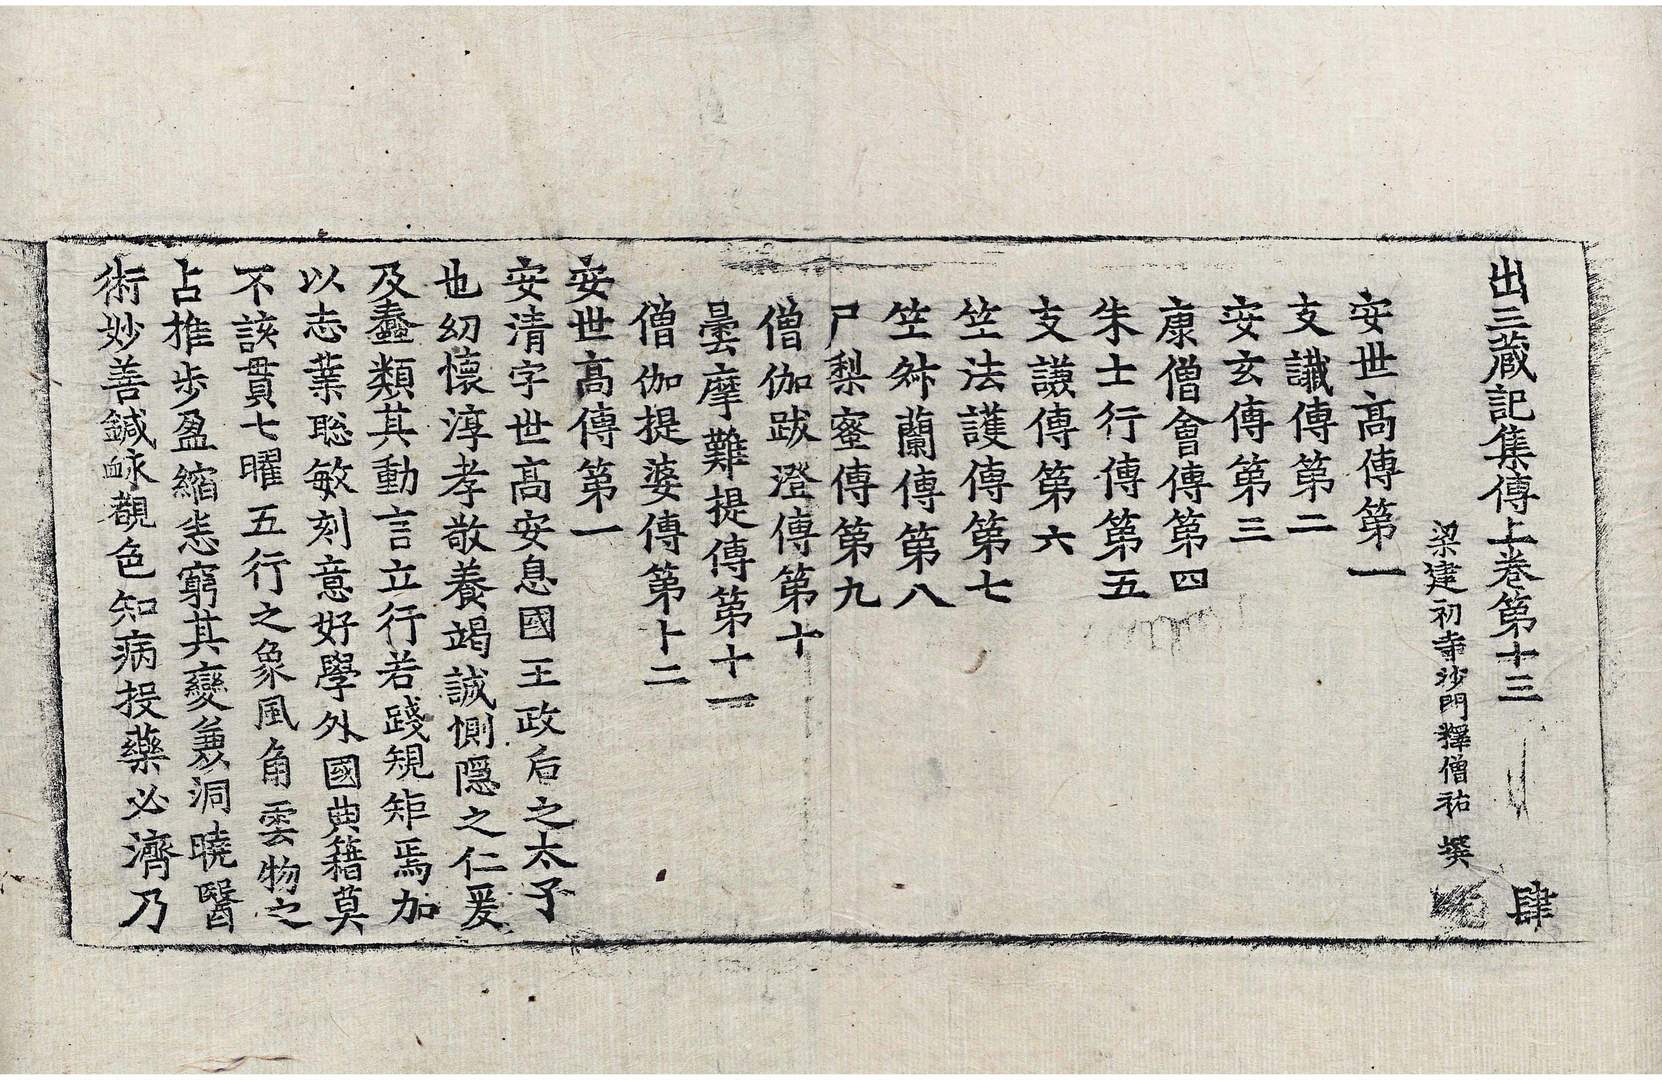 出三蔵記集傳上卷第十三 肆
梁建初寺沙門釋僧祐 撰
安世高傳第一
支讖傳第二
安玄傳第三
康僧會傳第四
朱士行傳第五
支謙傳第六
竺法護傳第七
竺叔蘭傳第八
尸梨蜜傳第九
僧伽跋澄傳第十
曇摩難提傳第十一
僧伽提婆傳第十二
安世高傳第一
安清字世高安息國王政后之太子
也幼懷淳孝敬養竭誠惻隱之仁爰
及蠢類其動言立行若踐規矩焉加
以志業聡敏刻意好學外國典籍莫
不該貫七曜五行之象風角雲物之
占推步盈縮悉窮其變兼洞曉醫
術妙善鍼衇覩色知病投藥必濟乃